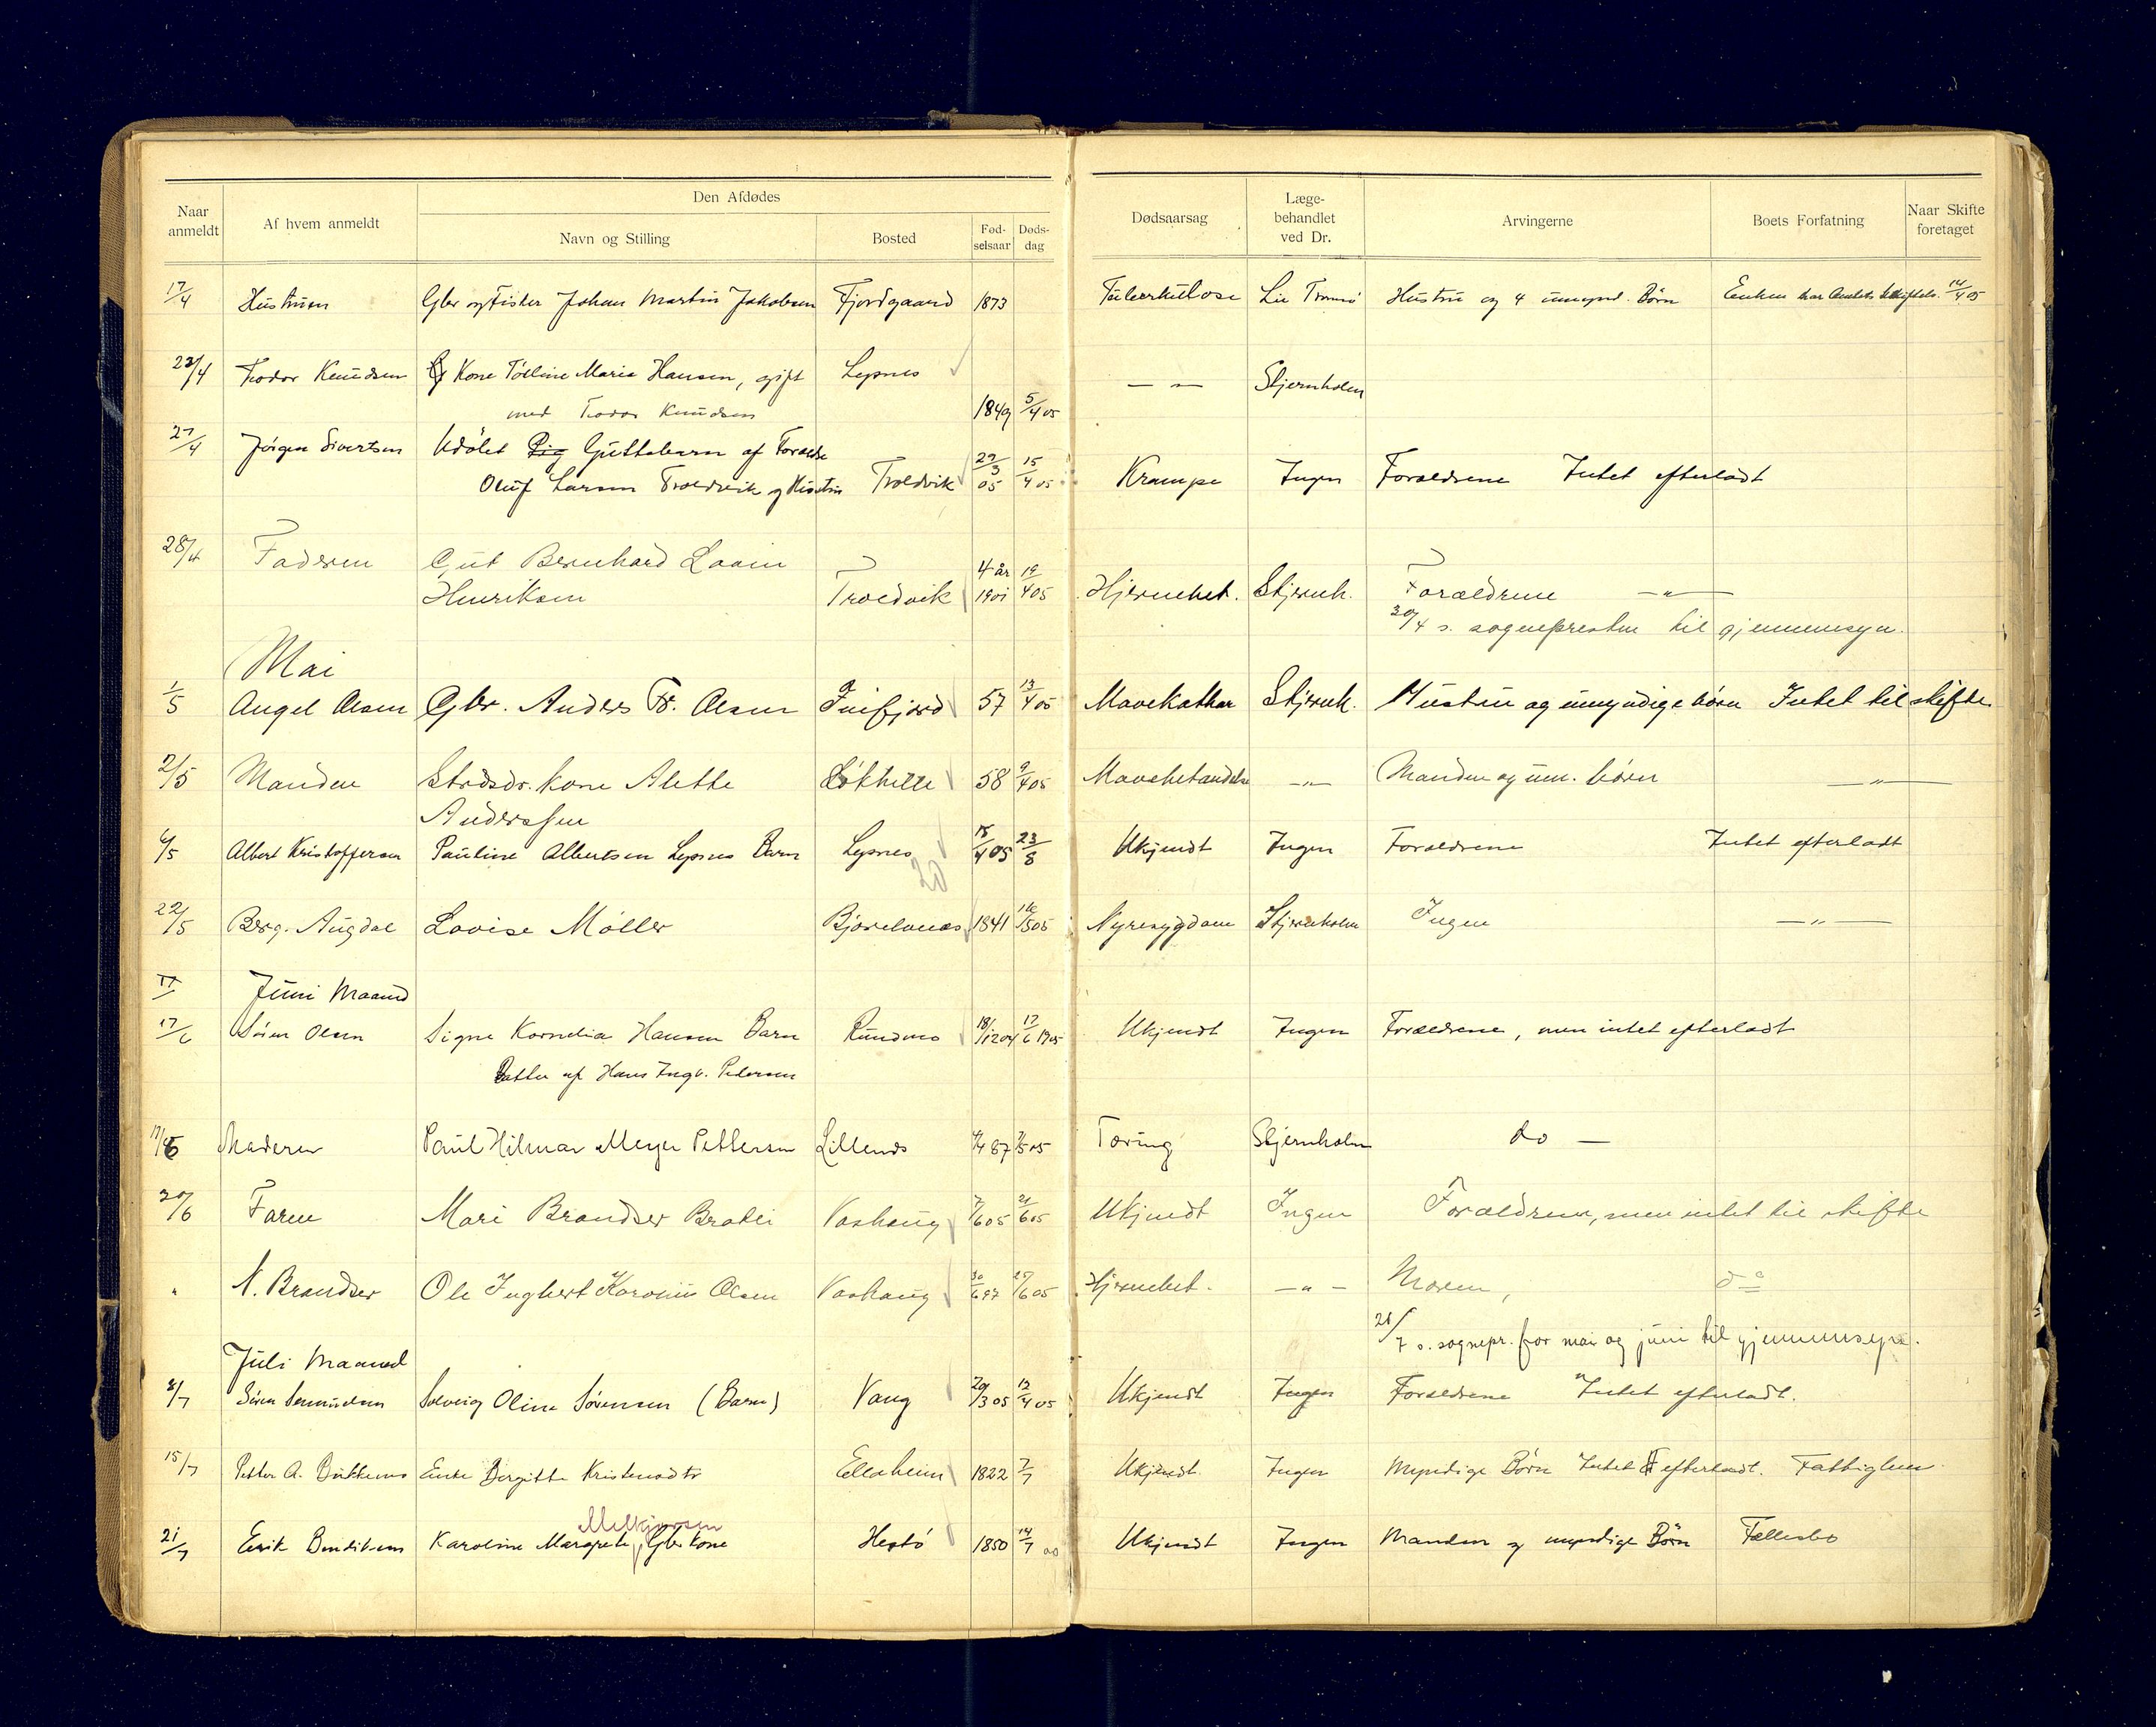 Den Afdødes
Naar anmeldt
Af hvem anmeldt
Navn og Stilling
Bosted
Fødselsaar
Dødsdag
Dødsaarsag
Læge-behandlet ved Dr.
Arvingerne
Boets Forfatning
Naar Skifte foretaget
17/4 Hustruen Gbr og Fisker Johan Martin Jakobsen Fjordgaard 1873 Tuberkulose Lie Tromsø Hustru og 4 umynd. Børn Enken har Amtets 14/4 05
22/4 Knudsen Kone Maria Hansen, gift Lysnes — " — Stjernholm
med Knudsen 1849 5/4 05
27/4 Jørgen Sivertsen Udøbt Pig Guttebarn af Foræld
Oluf Larsen Troldvik og Hustru Troldvik 29/3 05 15/4 05 Krampe Ingen Forældrene Intet efterladt
28/4 Faderen Gut Bernhard
Henriksen Troldvik 4 år 1901 19/4 05 Hjernebet. Stjernh. Forældrene — " —
30/4 s. sognepresten til gjennemsyn.
Mai
1/5 Angel Olsen Gbr. Anders Fr. Olsen 57 13/4 05 Mavekathar Stjernh. Hustru og umyndige børn Intet til skifte
2/5 Manden kone Alette 58 9/4 05 Mavebetændelse — " — Manden og um. børn — " —
Anderssen
6/5 Albert Kristoffersen Pauline Albertsen Lysnes Barn Lysnes 15/4 05 23/8 Ukjendt Ingen Forældrene Intet efterladt
20
22/5 Berg. Augdal Lovise Møller Bjørelvnes 1841 16/5 05 Nyresygdom Stjernholm Ingen — " —
Juni Maaned
17/6 Sören Olsen Signe Kornelia Hansen Barn Rundmo 18/12 04 17/6 1905 Ukjendt Ingen Forældrene, men intet efterladt
Datter af Hans Ingv. Pedersen
17/6 Moderen Paul Hilmar Meyer Pettersen Lillenes Tæring Stjernholm do —
20/6 Faren Mari Brandser Bratli Vashaug 7/6 05 21/6 05 Ukjendt Ingen Forældrene, men intet til skifte
" N. Brandser Ole Ingbert Olsen Vashaug 30/6 97 05 Hjernebet. — " — Moren, do
28/7 s. sognepr. for mai og juni til gjennemsyn.
Juli Maaned
8/7 Sören Solveig Oline Sörensen (Barn) Vang 29/3 05 13/4 05 Ukjendt Ingen Forældrene Intet efterladt.
15/7 Petter A. Enke Bergitte Kristensdtr 1822 7/7 Ukjendt Ingen Myndige Börn Intet efterladt. Fattiglem
Melkjorsen
21/7 Erik Bendiksen Karoline Margrete, Gbr kone Hestö 1850 14/7 Ukjendt Ingen Manden og myndige Börn Fællesbo